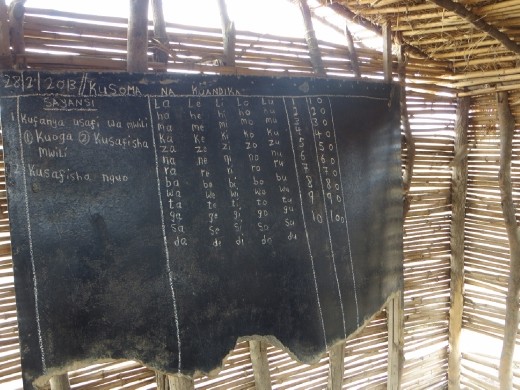 22/2/2013 // KUSOMA NA KUANDIKA
SAYANSI
1. Kufanya usafi wa mwili
① Kuoga ② Kusafisha
mwili
2 Kusafisha nguo
La Le Li Lo Lu 1 10
ha he hi ho hu 2 20
ma me mi mo mu 3 30
ka ke ki ko ku 4 40
za ze zi zo zu 5 50
na ne ni no nu 6 60
ra re ri ro ru 7 70
ba be bi bo bu 8 80
wa we wi wo wu 9 90
ta te ti to tu 10 100
ga ge gi go gu
sa se si so su
da de di do du